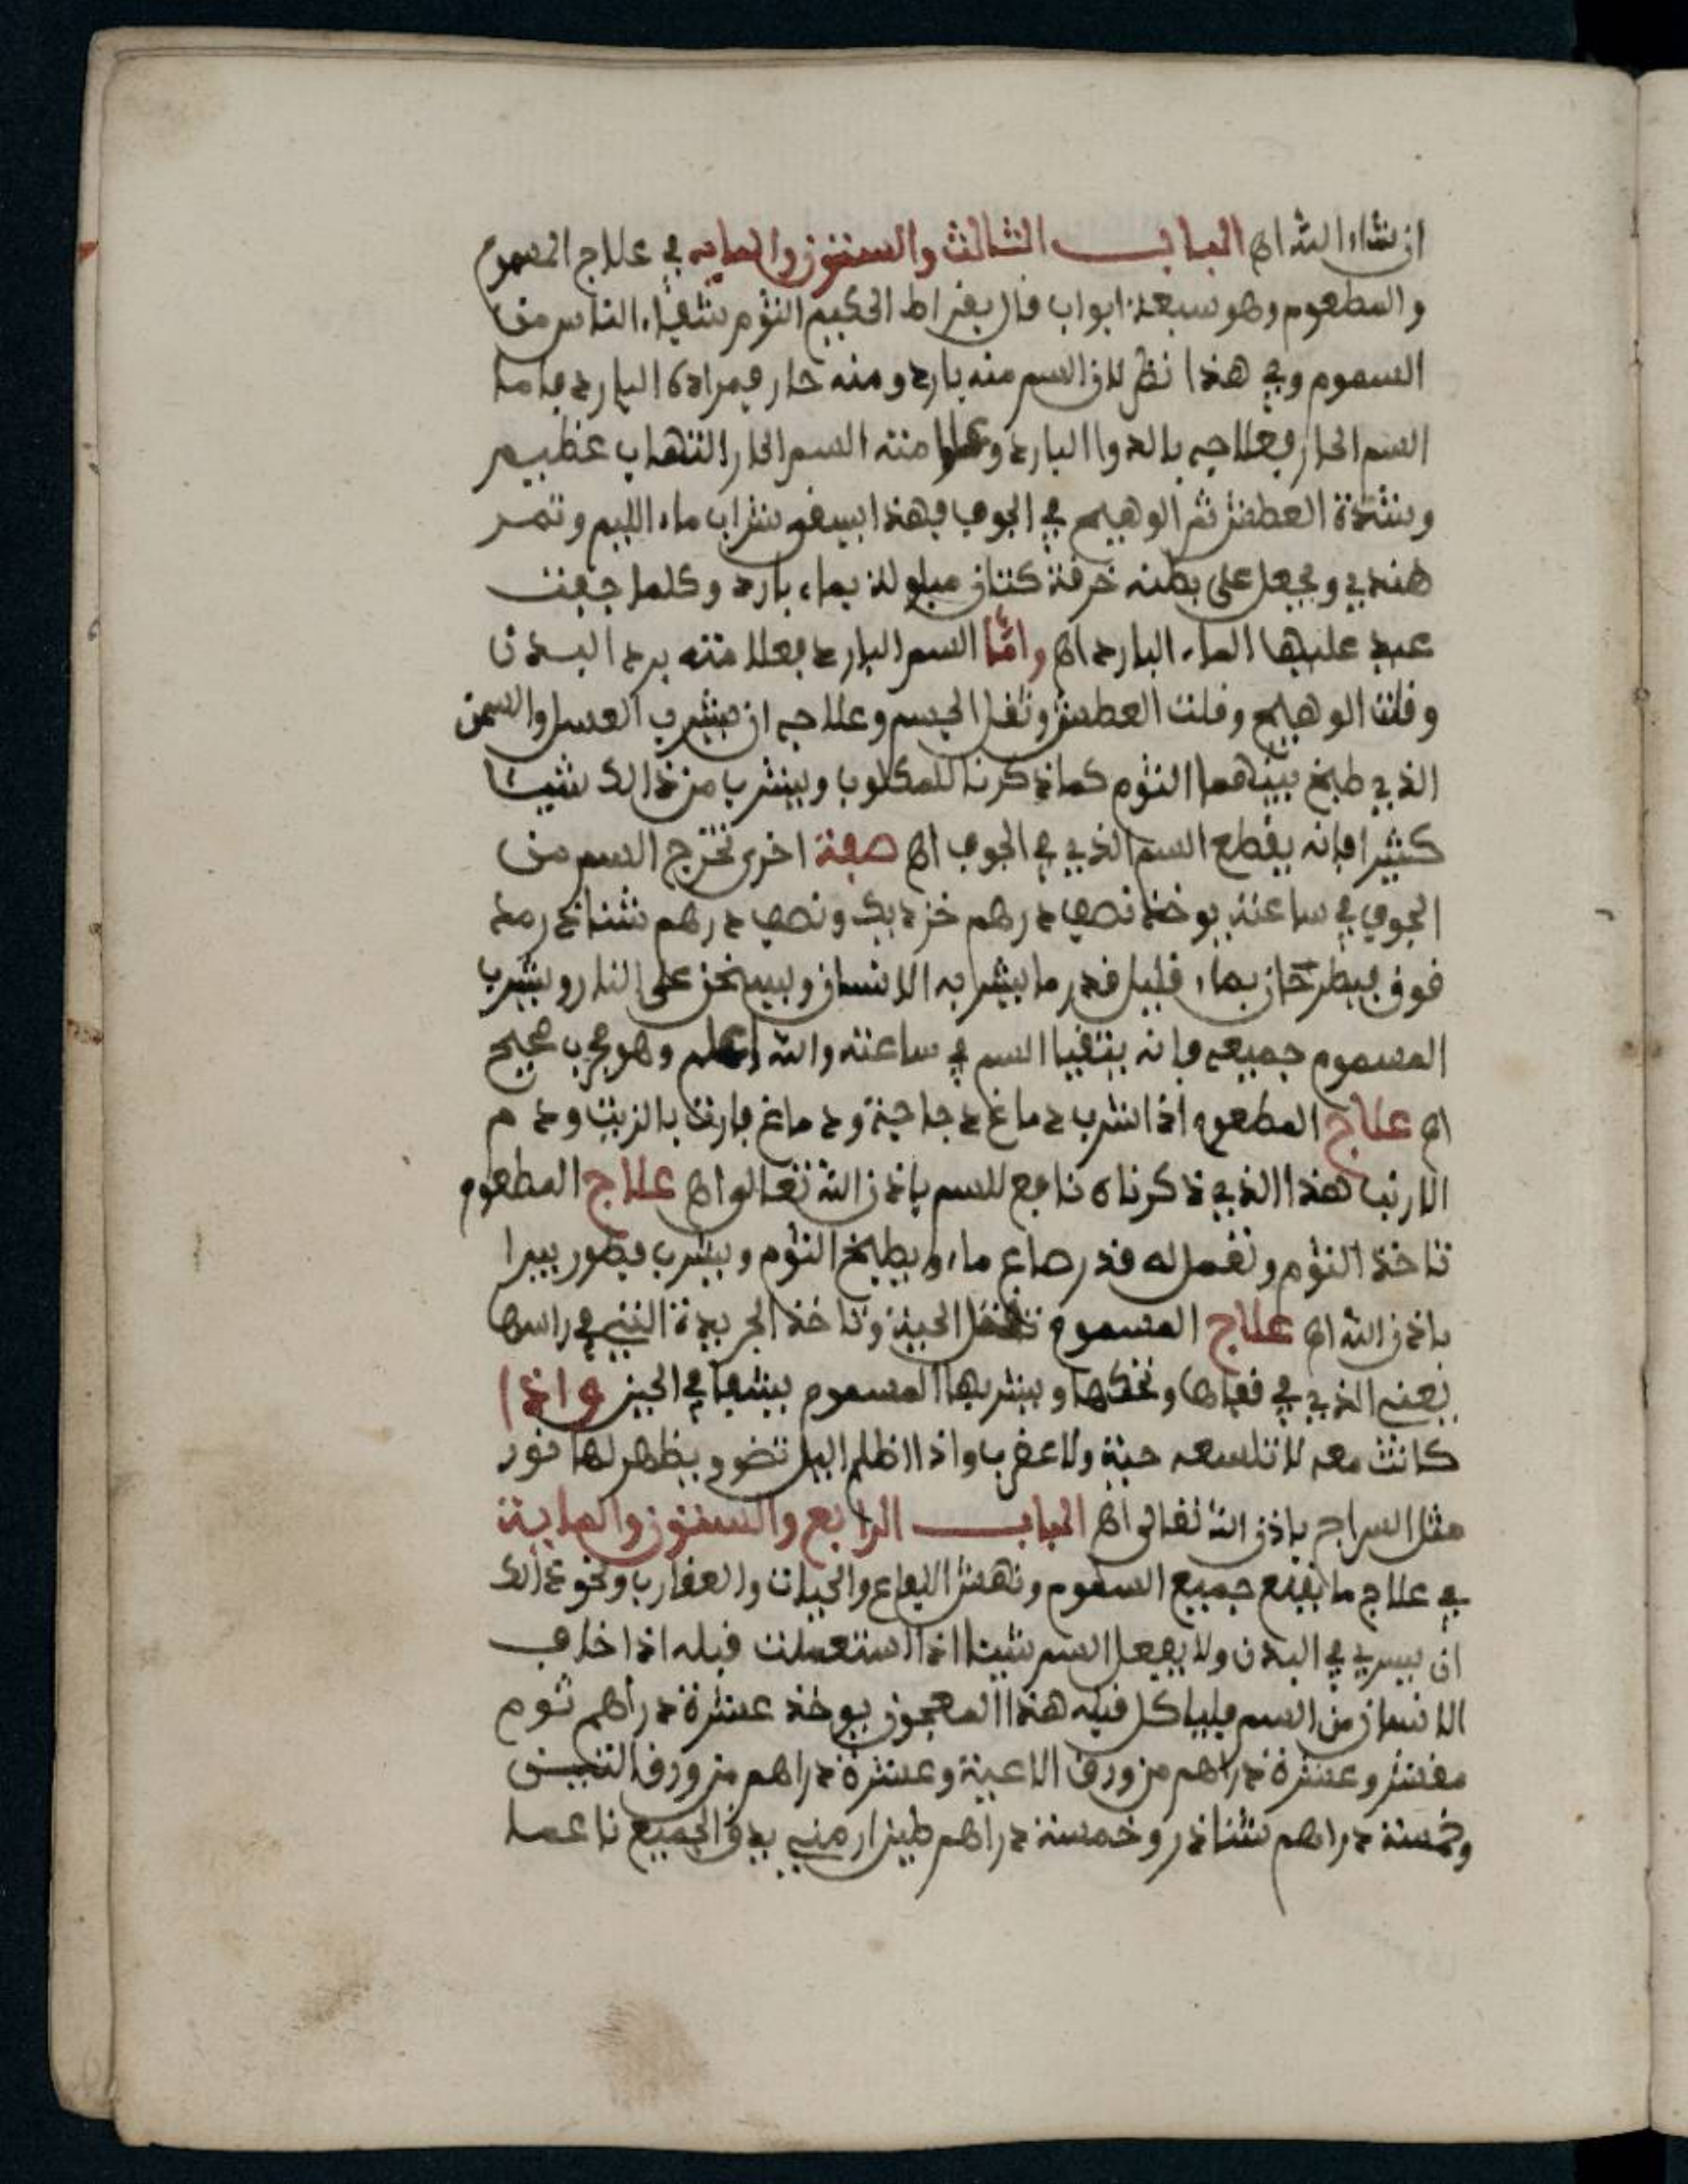 ان شاء الله اه الباب الثالث والستون والمايه في علاج المسموم
والمطعوم وهو سبعة ابواب قال بقراط الحكيم الثوم شفاء الناس من
السموم وفي هذا نظر لان السم منه بارد ومنه حار فمراده البارد فاما
السم الحار فعلاجه بالدوا البارد وعلامته السم الحار التهاب عظيم
وشدة العطش ثم الوهيج في الجوف فهذا يسقى شراب ماء الليم وتمر
هندي ويجعل على بطنه خرقة كتان مبلولة بماء بارد وكلما جفت
عيد عليها الماء البارد اه واما السم البارد فعلامته برد البدن
وقلت الوهيج وقلت العطش وثقل الجسم وعلاجه ان يشرب العسل والسمن
الذي طبخ بينهما الثوم كما ذكرنا للمكلوب ويشرب من ذالك شيئا
كثيرا فانه يقطع السم الذي في الجوف اه صفة اخرى تخرج السم من
الجوف في ساعته يوخذ نصف درهم خز ديك ونصف درهم شناذر مد
قوق فيطرحان بماء قليل قدر ما يشربه الانسان ويسخن على النار ويشرب
المسموم جميعه فانه يتقيا السم في ساعته والله اعلم وهو مجرب صحيح
اه علاج المطعوم اذا شرب دماغ دجاجة ودماغ فارت بالزيت ودم
الارنب هذا الذي ذكرناه نافع للسم باذن الله تعالى اه علاج المطعوم
تاخذ الثوم وتعمل له قدر صاع ماء ويطبخ الثوم ويشرب فطور يبرا
باذن الله اه علاج المسموم الحية وتاخذ الجريدة التي في راسها
يعني الذي في قفاها وتحكها ويشربها المسموم يشفا في الحين واذا
كانت معه لا تلسعه حية ولا عقرب واذا اظلم اليل تضو ويظهر لها نور
مثل السراج باذن الله تعالى اه الباب الرابع والستون والماية
في علاج ما يقمع جميع السموم ونهش الافاع والحيات والعقارب ونحو ذالك
ان يسري في البدن ولا يفعل السم شيئا اذا استعملت قبله اذا خاف
الانسان من السم فلياكل قبله هذا المعجون يوخذ عشرة دراهم ثوم
مقشر وعشرة دراهم من ورق الاعية وعشرة دراهم من ورق التين
وخمسة دراهم شناذر وخمسة دراهم طين ارمني يدق الجميع ناعما